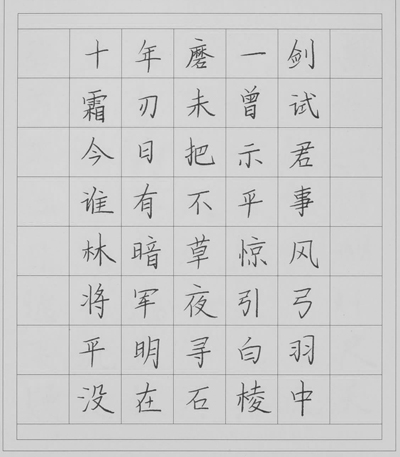 十年磨一剑
霜刃未曾试
今日把示君
谁有不平事
林暗草惊风
将军夜引弓
平明寻白羽
没在石棱中